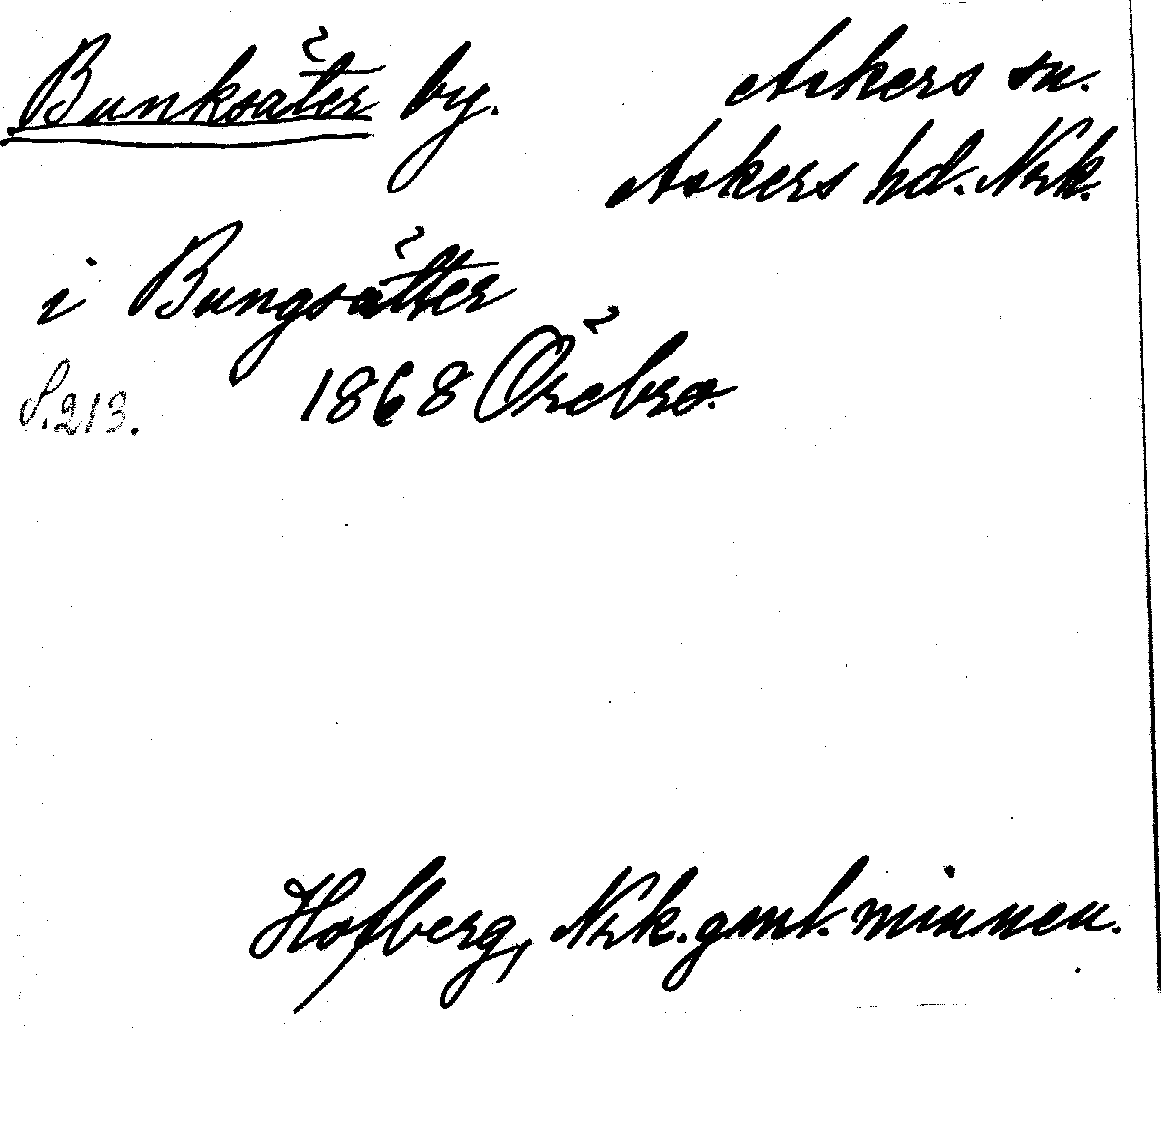 Bunksäter by. Askers sn.
Askers hd. Nrk.
i Bungsätter
S. 213. 1868 Örebro.
Hofberg, Nrk. gml. minnen.